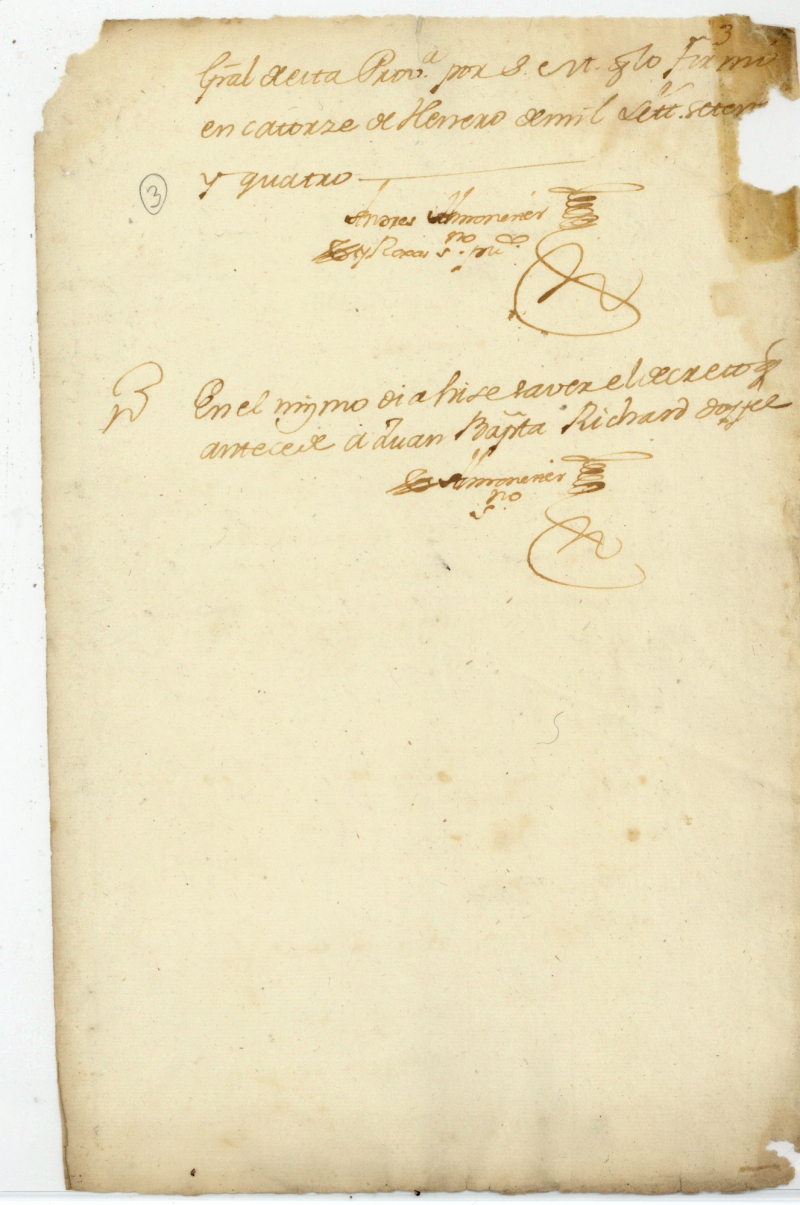 3
Gral de esta Prov.a por S. M. q lo firmó
en catorze de Henero de mil Sett.s seten
y quatro
3
Andres Almonester
y Roxas s.no pu.co
En el mysmo dia hise saver el decreto q
antecede á Juan Bapta Richard doy fee
Almonester
s.no